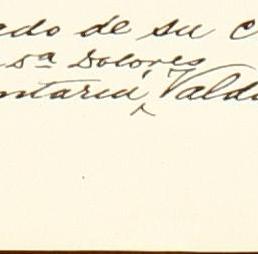 ado de su c
Dª Dolores
ntaria, Vald